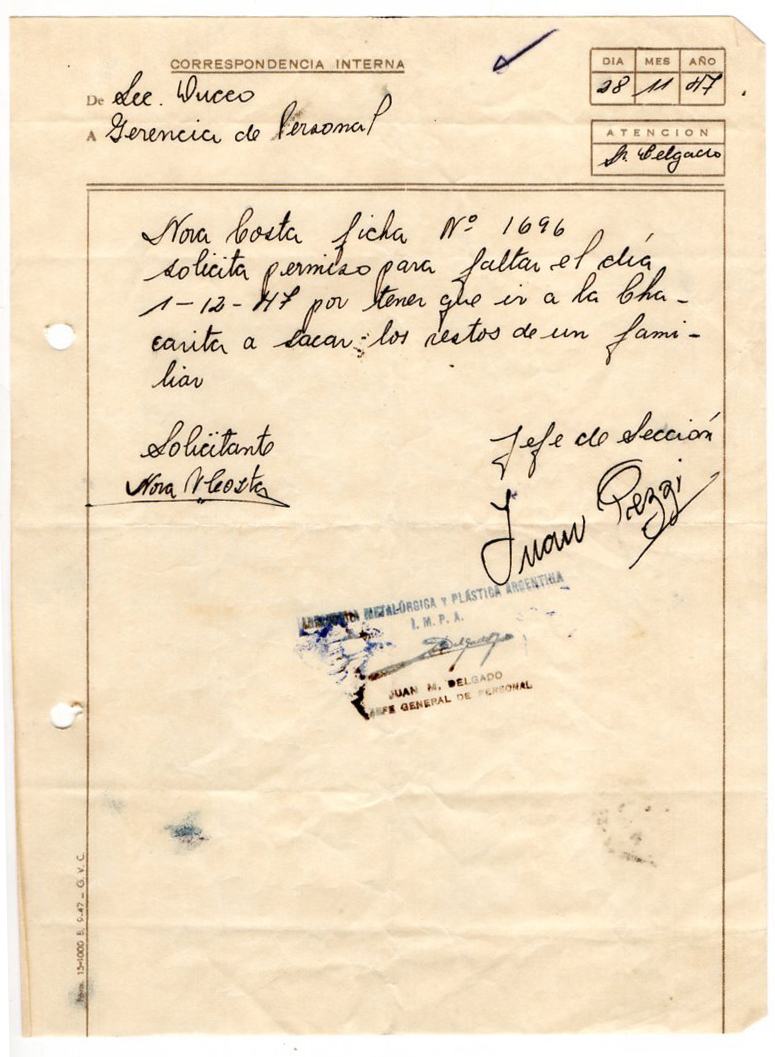 CORRESPONDENCIA INTERNA
DIA MES AÑO
28 11 47
De Sec. Ducco
A Gerencia de Personal
ATENCION
Sr. Delgado
Nora Costa ficha Nº 1696
solicita permiso para faltar el día
1-12-47 por tener que ir a la Cha-
carita a sacar los restos de un fami-
liar
Solicitante
Nora V Costa
Jefe de Sección
Juan Pezzi
METALÚRGICA Y PLÁSTICA ARGENTINA
I. M. P. A.
Delgado
JUAN M. DELGADO
JEFE GENERAL DE PERSONAL
Form. 15-1000 B. 9-47 - G. V. C.